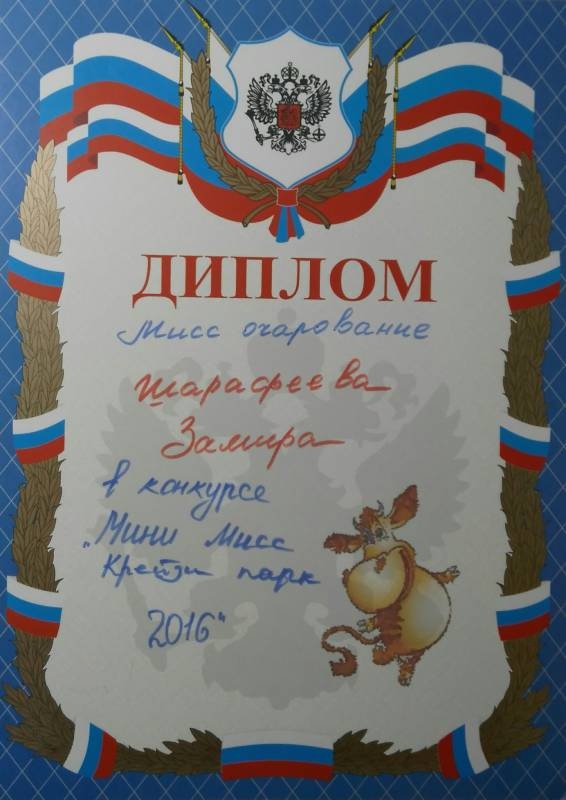 ДИПЛОМ
Мисс очарование
Шарафеева
Замира
в конкурсе
„Мини Мисс
Крейзи парк
2016"